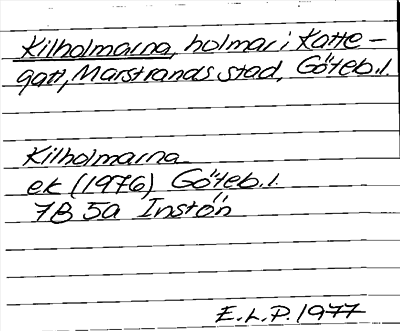 Kilholmarna, holmar i Katte-
gatt, Marstrands stad, Göteb.l.
Kilholmarna
ek (1976) Göteb.l.
7B 5a Instön
E.L.P. 1977